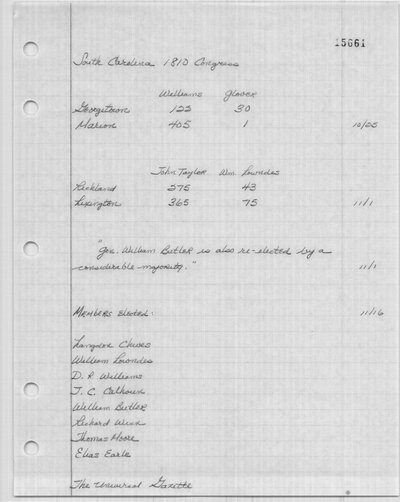 15661
South Carolina 1810 Congress
Williams Glover
Georgetown 122 30
Marion 405 1 10/25
John Taylor Wm. Lowndes
Richland 575 43
Lexington 365 75 11/1
"Gen. William Butler is also re-elected by a
considerable majority." 11/1
Members Elected: 11/16
Langdon Cheves
William Lowndes
D. R. Williams
J. C. Calhoun
William Butler
Richard Winn
Thomas Moore
Elias Earle
The Universal Gazette